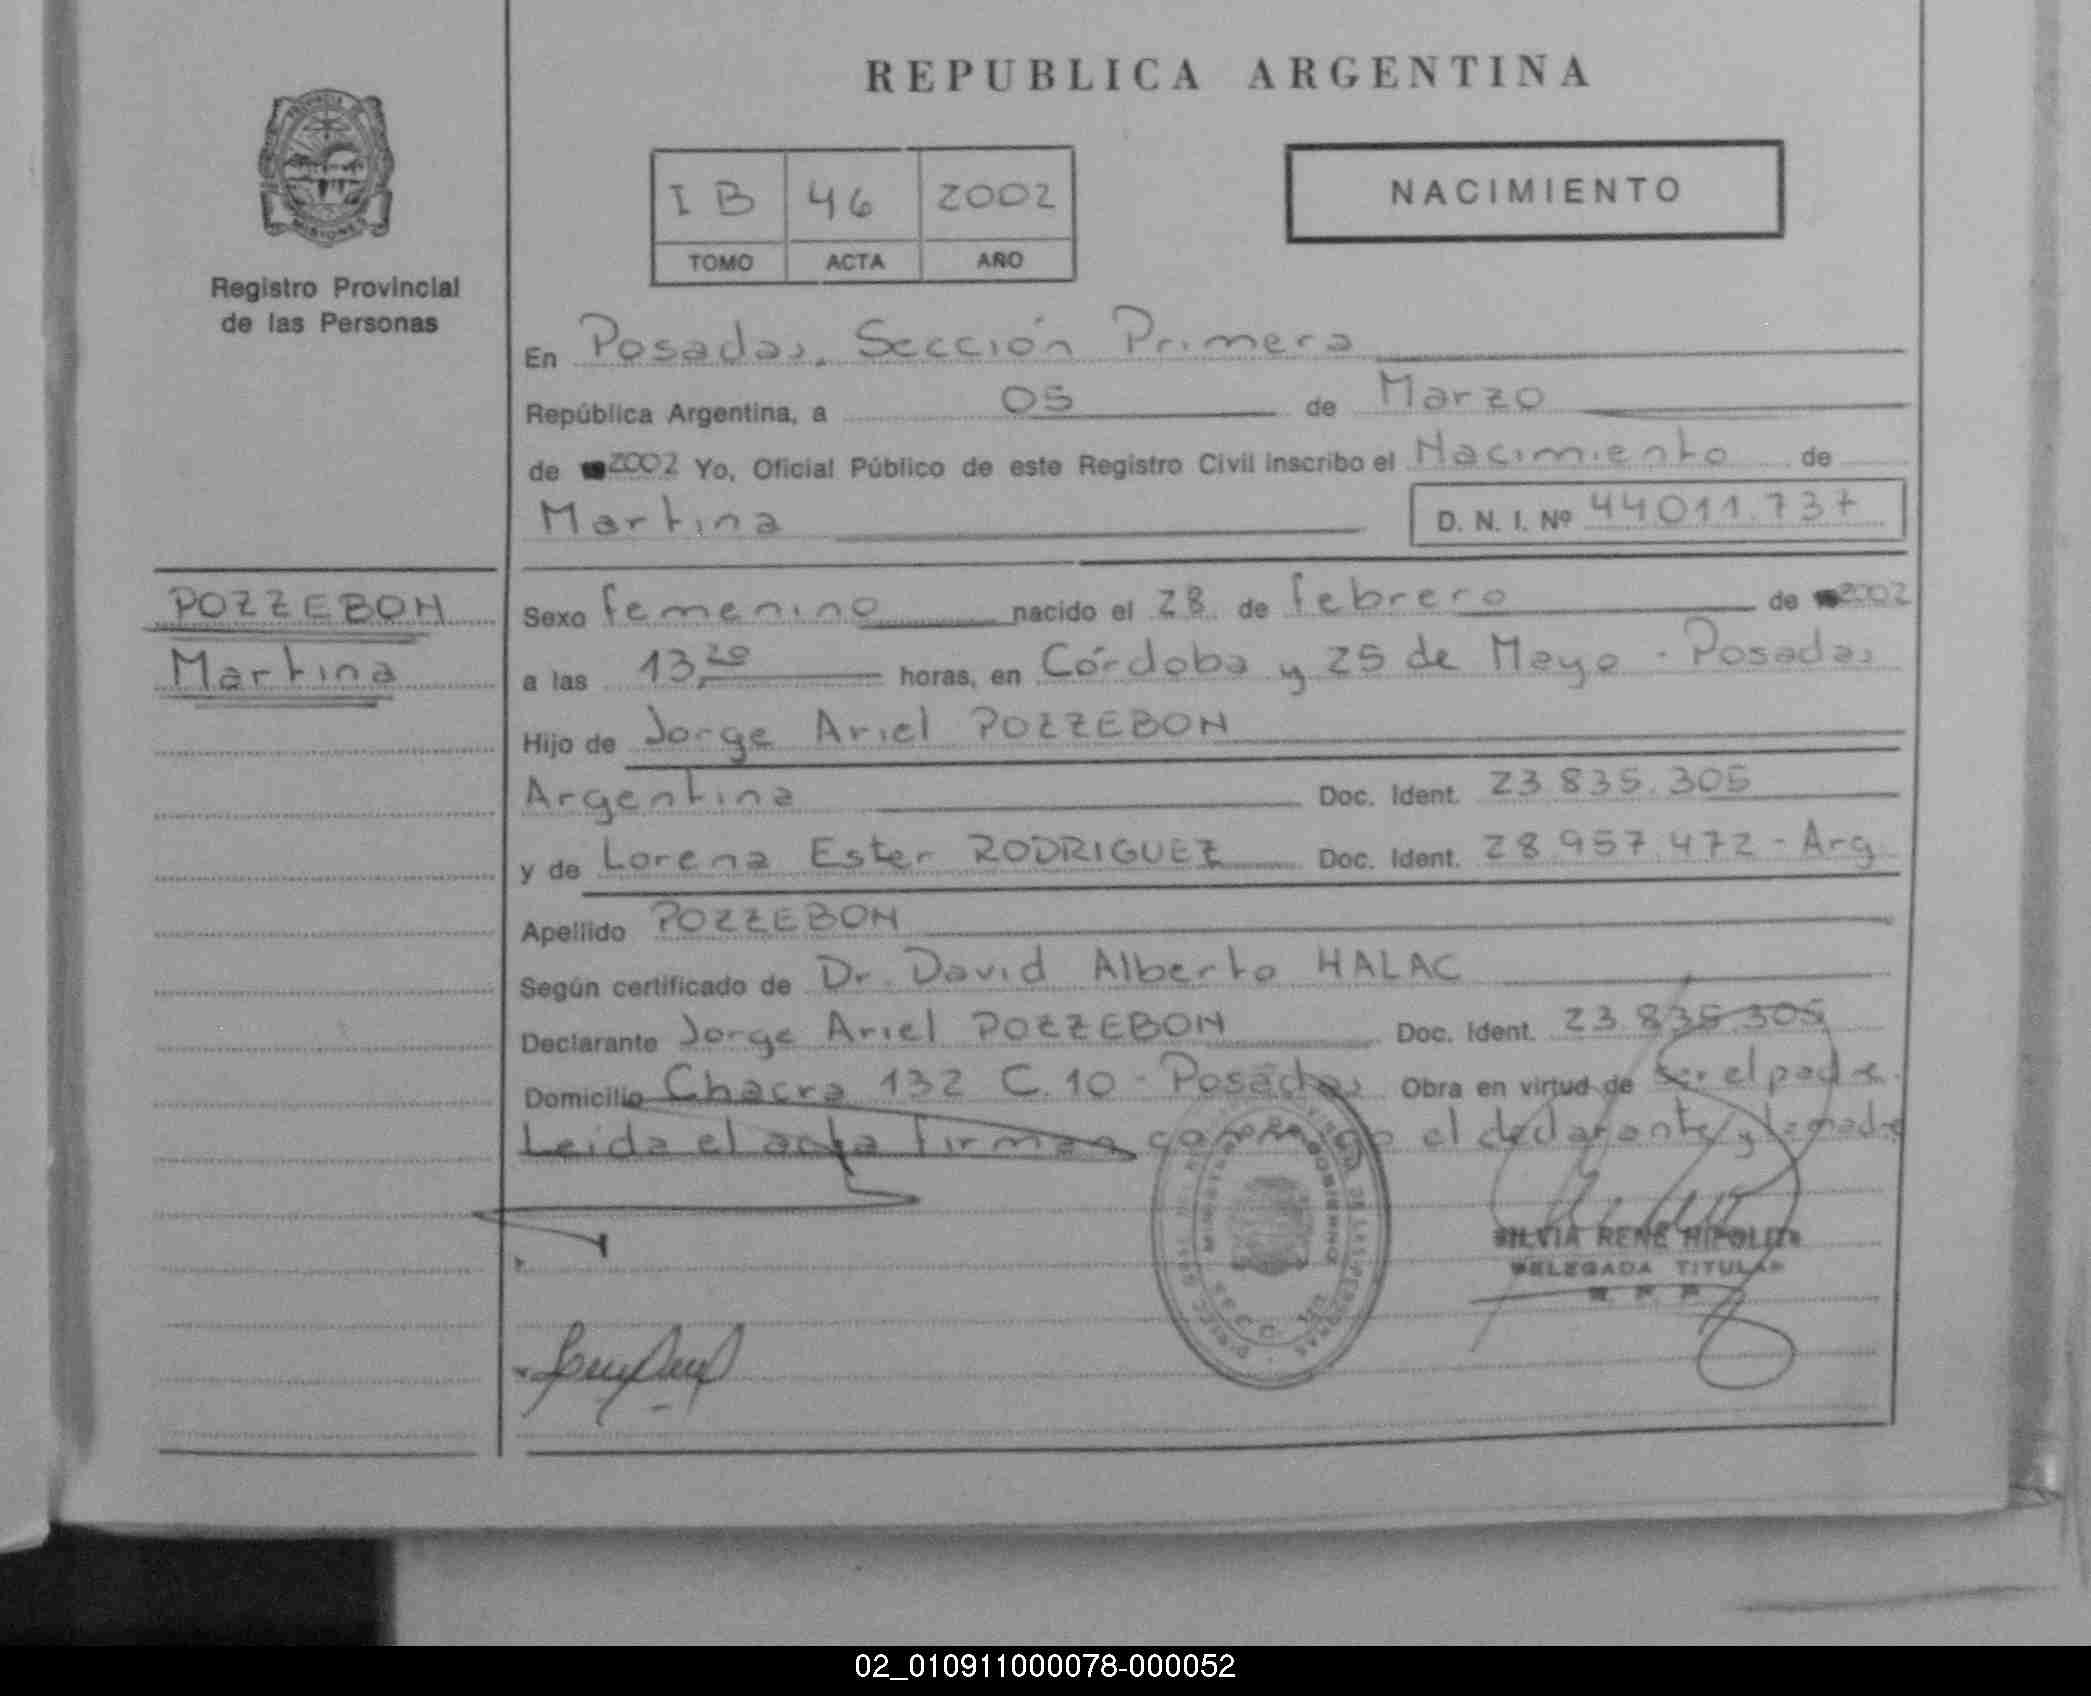 REPUBLICA ARGENTINA
PROVINCIA DE MISIONES
Registro Provincial
de las Personas
I B 46 2002
TOMO ACTA AÑO
NACIMIENTO
En Posadas, Sección Primera
República Argentina, a 05 de Marzo
de 2002 Yo, Oficial Público de este Registro Civil inscribo el Nacimiento de
Martina D. N. I. Nº 44011.737
POZZEBON
Martina
Sexo femenino nacido el 28 de febrero de 2002
a las 13,20 horas, en Córdoba y 25 de Mayo - Posadas
Hijo de Jorge Ariel POZZEBON
Argentina Doc. Ident. 23 835.305
y de Lorena Ester RODRIGUEZ Doc. Ident. 28 957.472 - Arg
Apellido POZZEBON
Según certificado de Dr. David Alberto HALAC
Declarante Jorge Ariel POZZEBON Doc. Ident. 23 835.305
Domicilio Chacra 132 C.10 - Posadas Obra en virtud de ser el padre.
Leida el acta firman conmigo el declarante y la madre
SILVIA RENÉ HIPOLITO
DELEGADA TITULAR
R. P. P.
02_010911000078-000052